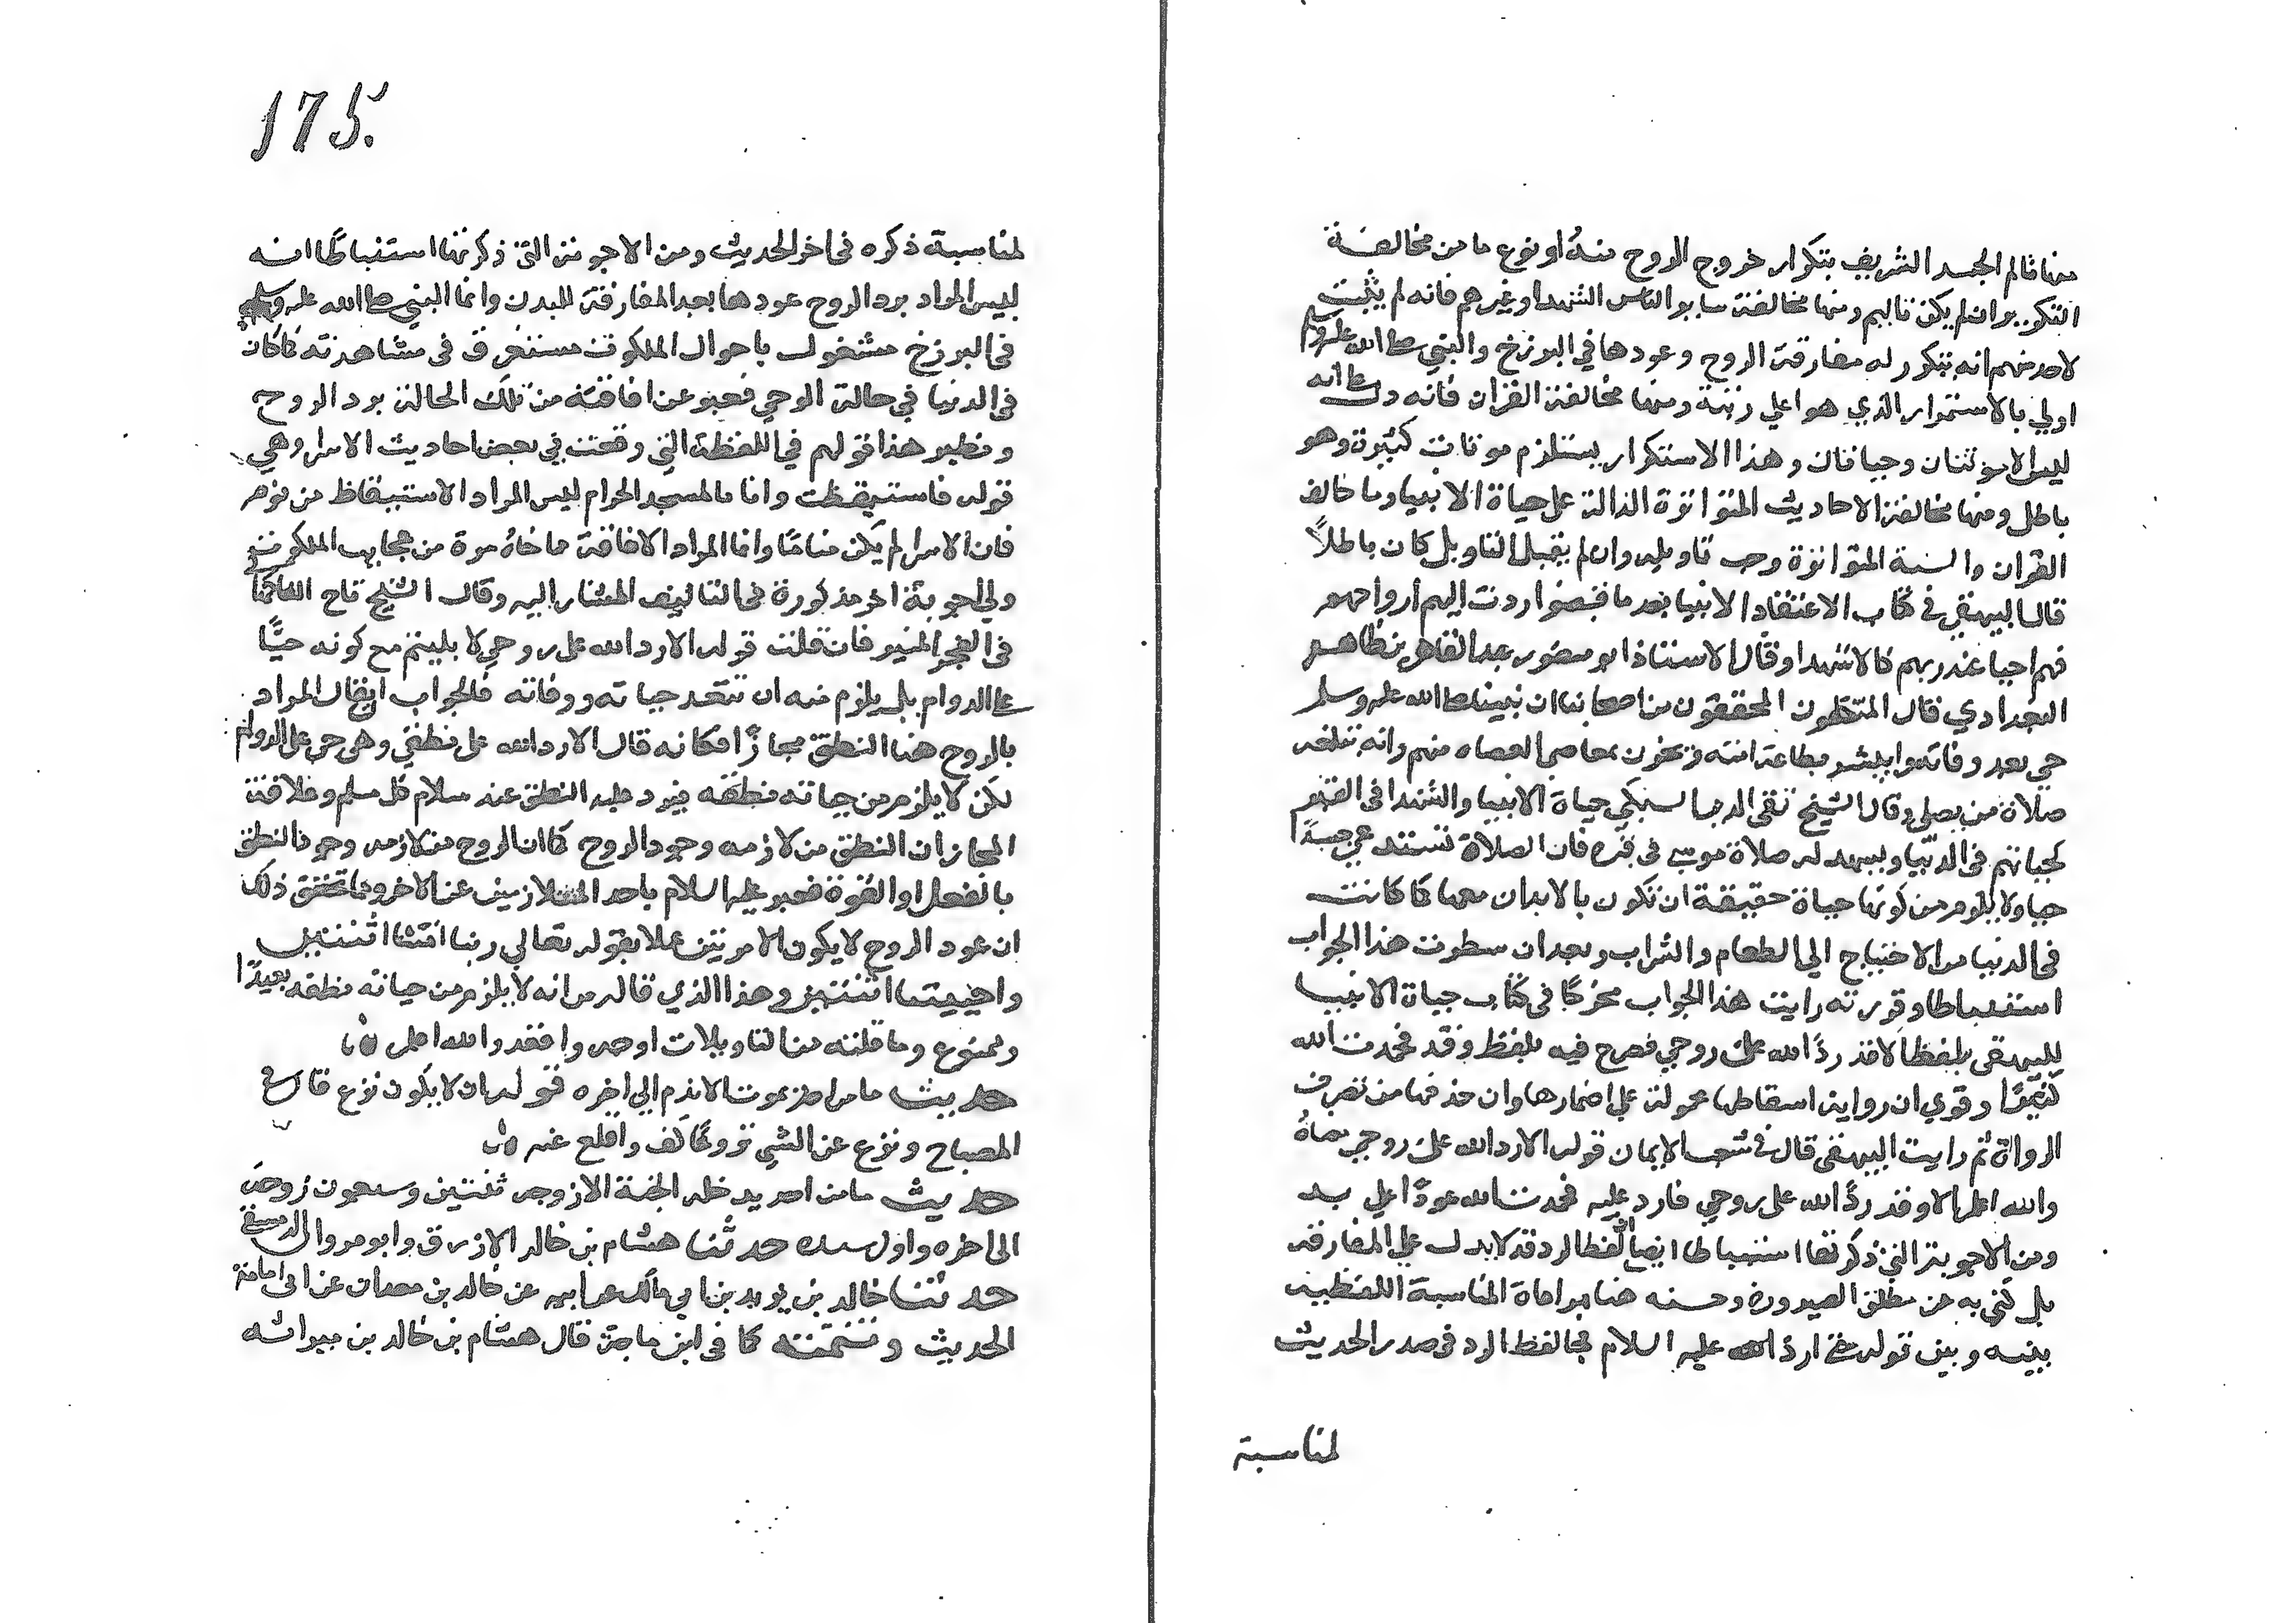 منها تالم الجسد الشريف بتكرار خروج الروح منهُ او نوع ما من مخالفة
التكرير ان لم يكن تاليم ومنها مخالفة سايرو الناس الشهدا وغيرهم فانه لم يثبت
لاحد منهم انه يتكرر له مفارقة الروح وعودها في البرزخ والنبي صلى الله عليه وسلم
اولي بالاستمرار الذي هو اعلي رتبة ومنها مخالفة القران فانه دل على انه
ليس الا موتتان وحياتان وهذا الاستكرار يستلزم موتات كثيرة وهو
باطل ومنها مخالفة الاحاديث المتواترة الدالة على حياة الانبيا وما خالف
القران والسنة المتواترة وجب تاويله وان لم يقبل التاويل كان باطلاً
قال البيهقي في كتاب الاعتقاد الانبيا بعد ما قبضوا ردت اليهم ارواحهم
فهم احيا عند ربهم كالاشهدا وقال الاستاذ ابو منصور عبد القاهر بن طاهر
البغدادي قال المتكلمون المحققون من اصحابنا ان نبينا صلى الله عليه وسلم
حي بعد وفاته وانه يبشر بطاعة امته ويحزن بمعاصي العصاه منهم وانه تبلغه
صلاة من يصلي وقال الشيخ تقي الدين السبكي حياة الانبيا والشهدا في القبر
كحياتهم في الدنيا ويشهد له صلاة موسى في قبره فان الصلاة تستدعي جسدًا
حيا ولا يلزم من كونها حياة حقيقة ان تكون بالابدان معها كما كانت
في الدنيا من الاحتياج الي الطعام والشراب وبعد ان سطرت هذا الجواب
استنباطا وقررته رايت هذا الجواب محرّكا في كتاب حياة الانبيا
للبيهقي بلفظ الا قد ردّ الله علىّ روحي فصرح فيه بلفظ وقد فحمدت الله
كثيرًا وقوي ان رواية اسقاطها محمولة علي اضمارها وان حذفها من تصرف
الرواة ثم رايت البيهقي قال في شعب الايمان قوله الا رد الله علىّ روحي معناهُ
والله اعلم الا وقد ردّ الله على روحي فارد عليه فحمدت الله عودًا علي بد
ومن الاجوبة التي ذكرتها استنباطا ايضا ان لفظ الرد قد لا يدل علي المفارقه
بل كنى به عن مطلق الصيرورة وحسنه هنا مراعاة المناسبة اللفظيه
بينه وبين قوله حتى ارد السلام عليه السلام فجا لفظ الرد في صدر الحديث
لمناسبة
175.
لمناسبة ذكره في اخر الحديث ومن الاجوبة التي ذكرتها استنباطًا انه
ليس المراد برد الروح عودها بعد المفارقة للبدن وانما النبي صلى الله عليه وسلم
في البرزخ مشغول باحوال الملكوت مستغرق في مشاهدته كما كان
في الدنيا في حالة الوحي فعبر عن افاقته من تلك الحالة برد الروح
ونظير هذا قولهم في اللفظة التي وقعت في بعض احاديث الاسرا وهي
قوله فاستيقظت وانا بالمسجد الحرام ليس المراد الاستيقاظ من نوم
فان الاسرا لم يكن منامًا وانما المراد الافاقة مما خامرهُ من عجايب الملكوت
ولي اجوبة اخر مذكورة في التاليف المشار اليه وقال الشيخ تاج الفاكهاني
في الفجر المنير فان قلت قوله الا رد الله على روحي لا يلتيم مع كونه حيًّا
على الدوام بل يلزم منه ان تتعدد حياته ووفاته فالجواب ان يقال المراد
بالروح هنا النطق مجازًا فكانه قال الا رد الله على نطقي وهو حي على الدوام
لكن لا يلزم من حياته نطقه فيرد عليه النطق عند سلام كل مسلم وعلاقة
المجاز ان النطق من لازمه وجود الروح كما ان الروح من لازمه وجود النطق
بالفعل او القوة فعبر عليه السلام باحد المتلازمين عن الاخر ومما يحقق ذلك
ان عود الروح لا يكون الا مرتين عملا بقوله تعالي ربنا امتنا اثنتين
واحييتنا اثنتين وهذا الذي قاله من انه لا يلزم من حياته نطقه بعيدًا
وممنوع وما قلته من التاويلات اوجه وافقد والله اعلم
حديث ما من احد يموت الا ندم الي اخره قوله ان لا يكون نزع قال في
المصباح ونزع عن الشي نزوعًا كف واقلع عنه
حديث ما من احد يدخله الجنة الا زوجه ثنتين وسبعون زوجة
الى اخره واول سنده حدثنا هشام بن خالد الازرق وابو مروان الدمشقي
حدثنا خالد بن يزيد بن ابي مالك عن ابيه عن خالد بن معدان عن ابي امامة
الحديث وتتمته كما في ابن ماجة قال هشام بن خالد من ميراثه